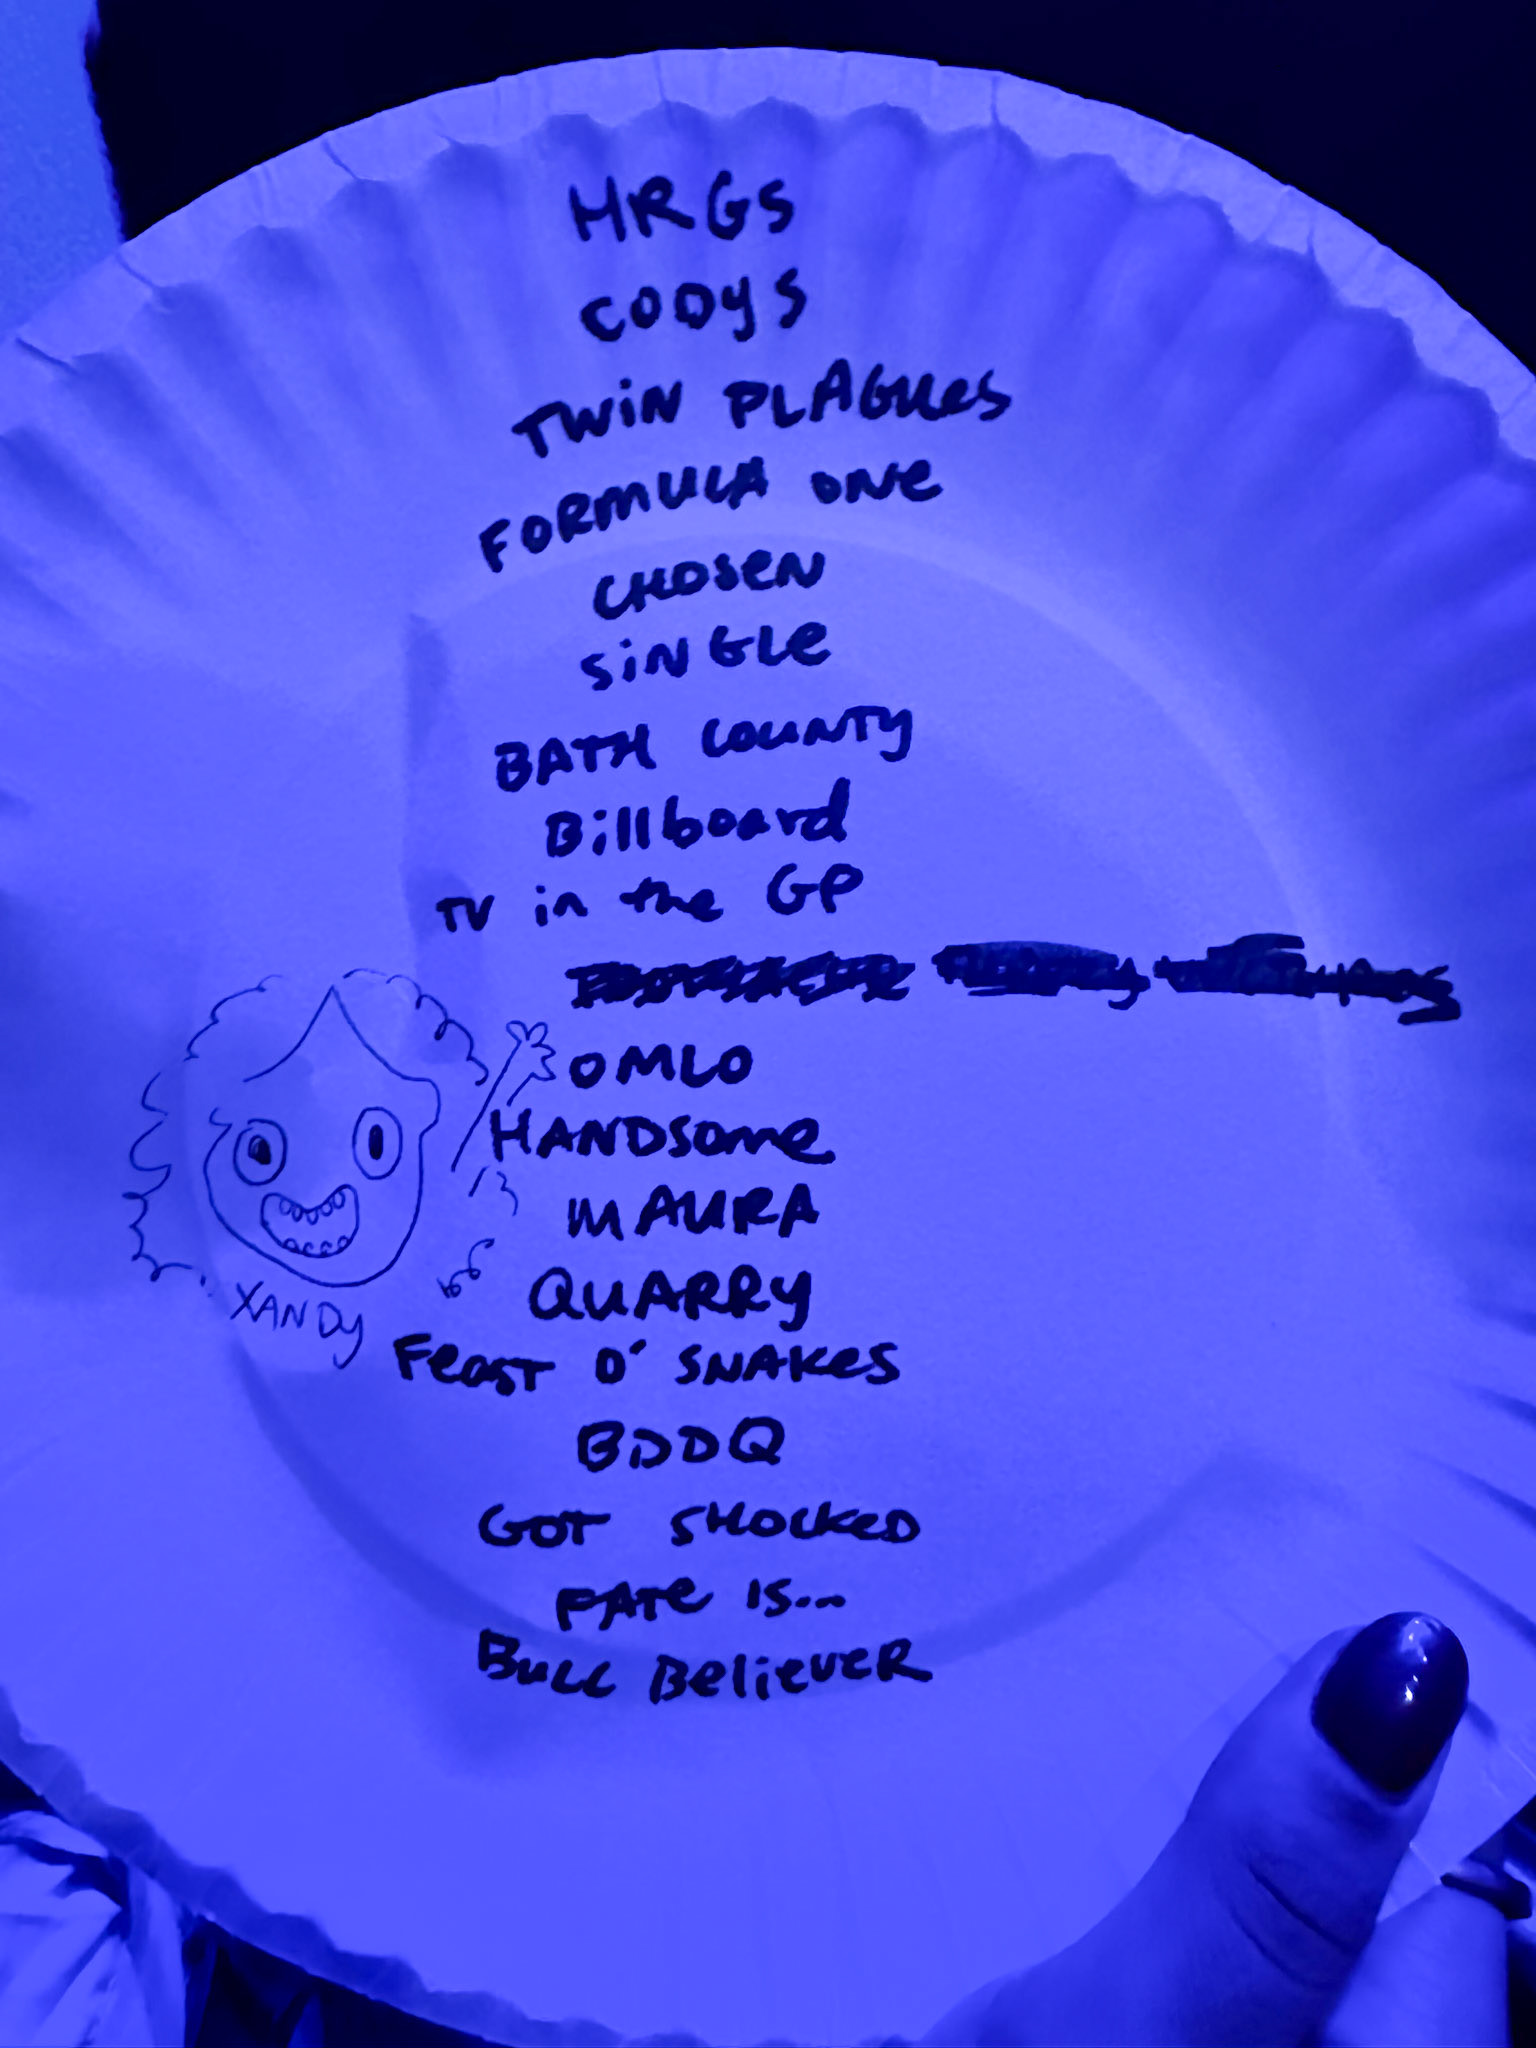 HRGS
CODYS
TWiN PLAGUes
FORMULA ONe
CHOSeN
SiNGLe
BATH COUNTY
Billboard
TV in the GP
OMLO
HANDSome
MAURA
QUARRY
XANDy
FeasT O' SNAKeS
BDDQ
GOT SHOCKeD
FATe IS...
BULL BelieveR